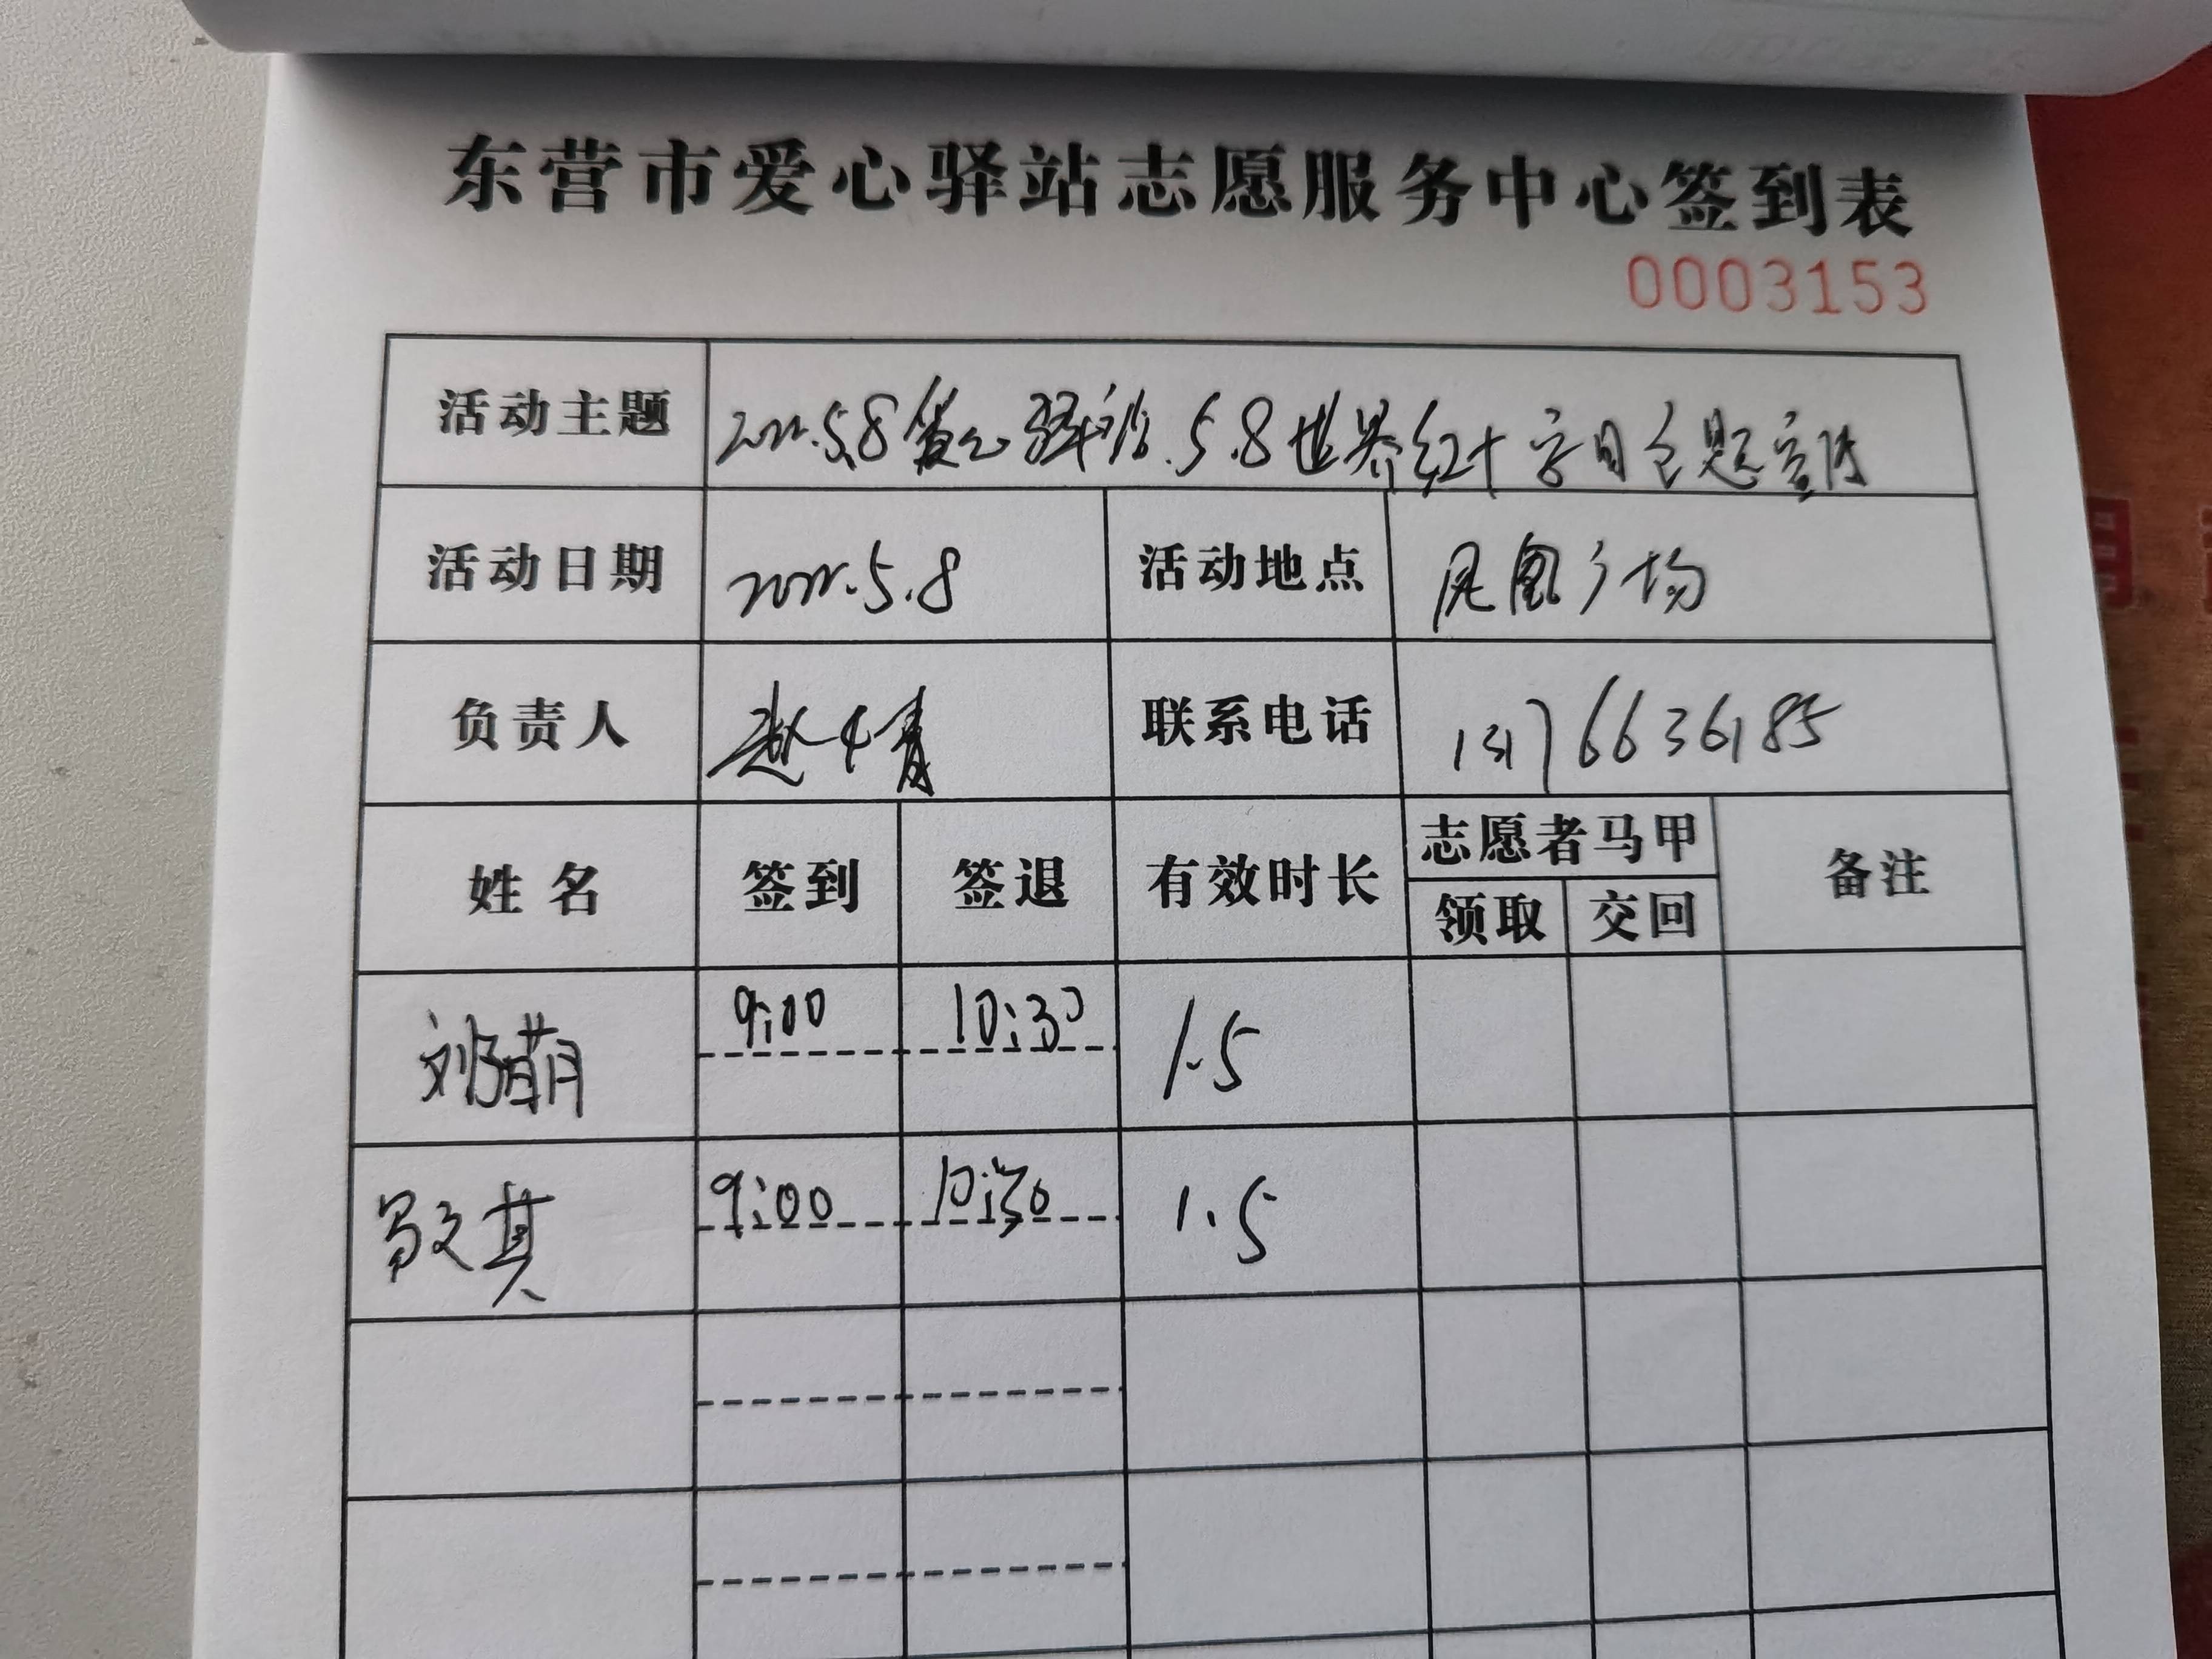 东营市爱心驿站志愿服务中心签到表
0003153
活动主题 2022.5.8爱心驿站.5.8世界红十字日主题宣传
活动日期 2022.5.8 活动地点 凤凰广场
负责人 联系电话
姓名 签到 签退 有效时长 志愿者马甲 备注
领取 交回
9:00 10:30 1.5
9:00 10:30 1.5